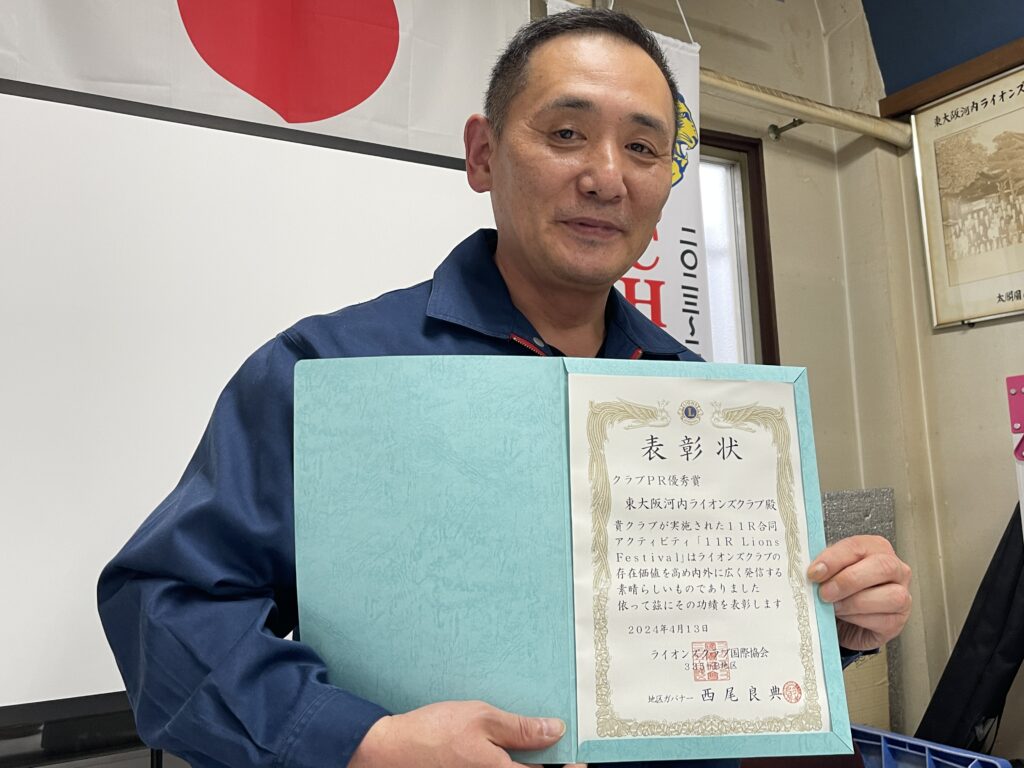 表彰状
クラブＰＲ優秀賞
東大阪河内ライオンズクラブ殿
貴クラブが実施された１１Ｒ合同
アクティビティ「１１Ｒ Ｌｉｏｎｓ
Ｆｅｓｔｉｖａｌ」はライオンズクラブの
存在価値を高め内外に広く発信する
素晴らしいものでありました
依って茲にその功績を表彰します
２０２４年４月１３日
ライオンズクラブ国際協会
３３５－Ｂ地区
地区ガバナー 西尾良典
L
CH
二〇二三〜
東大阪河内ライオンズ